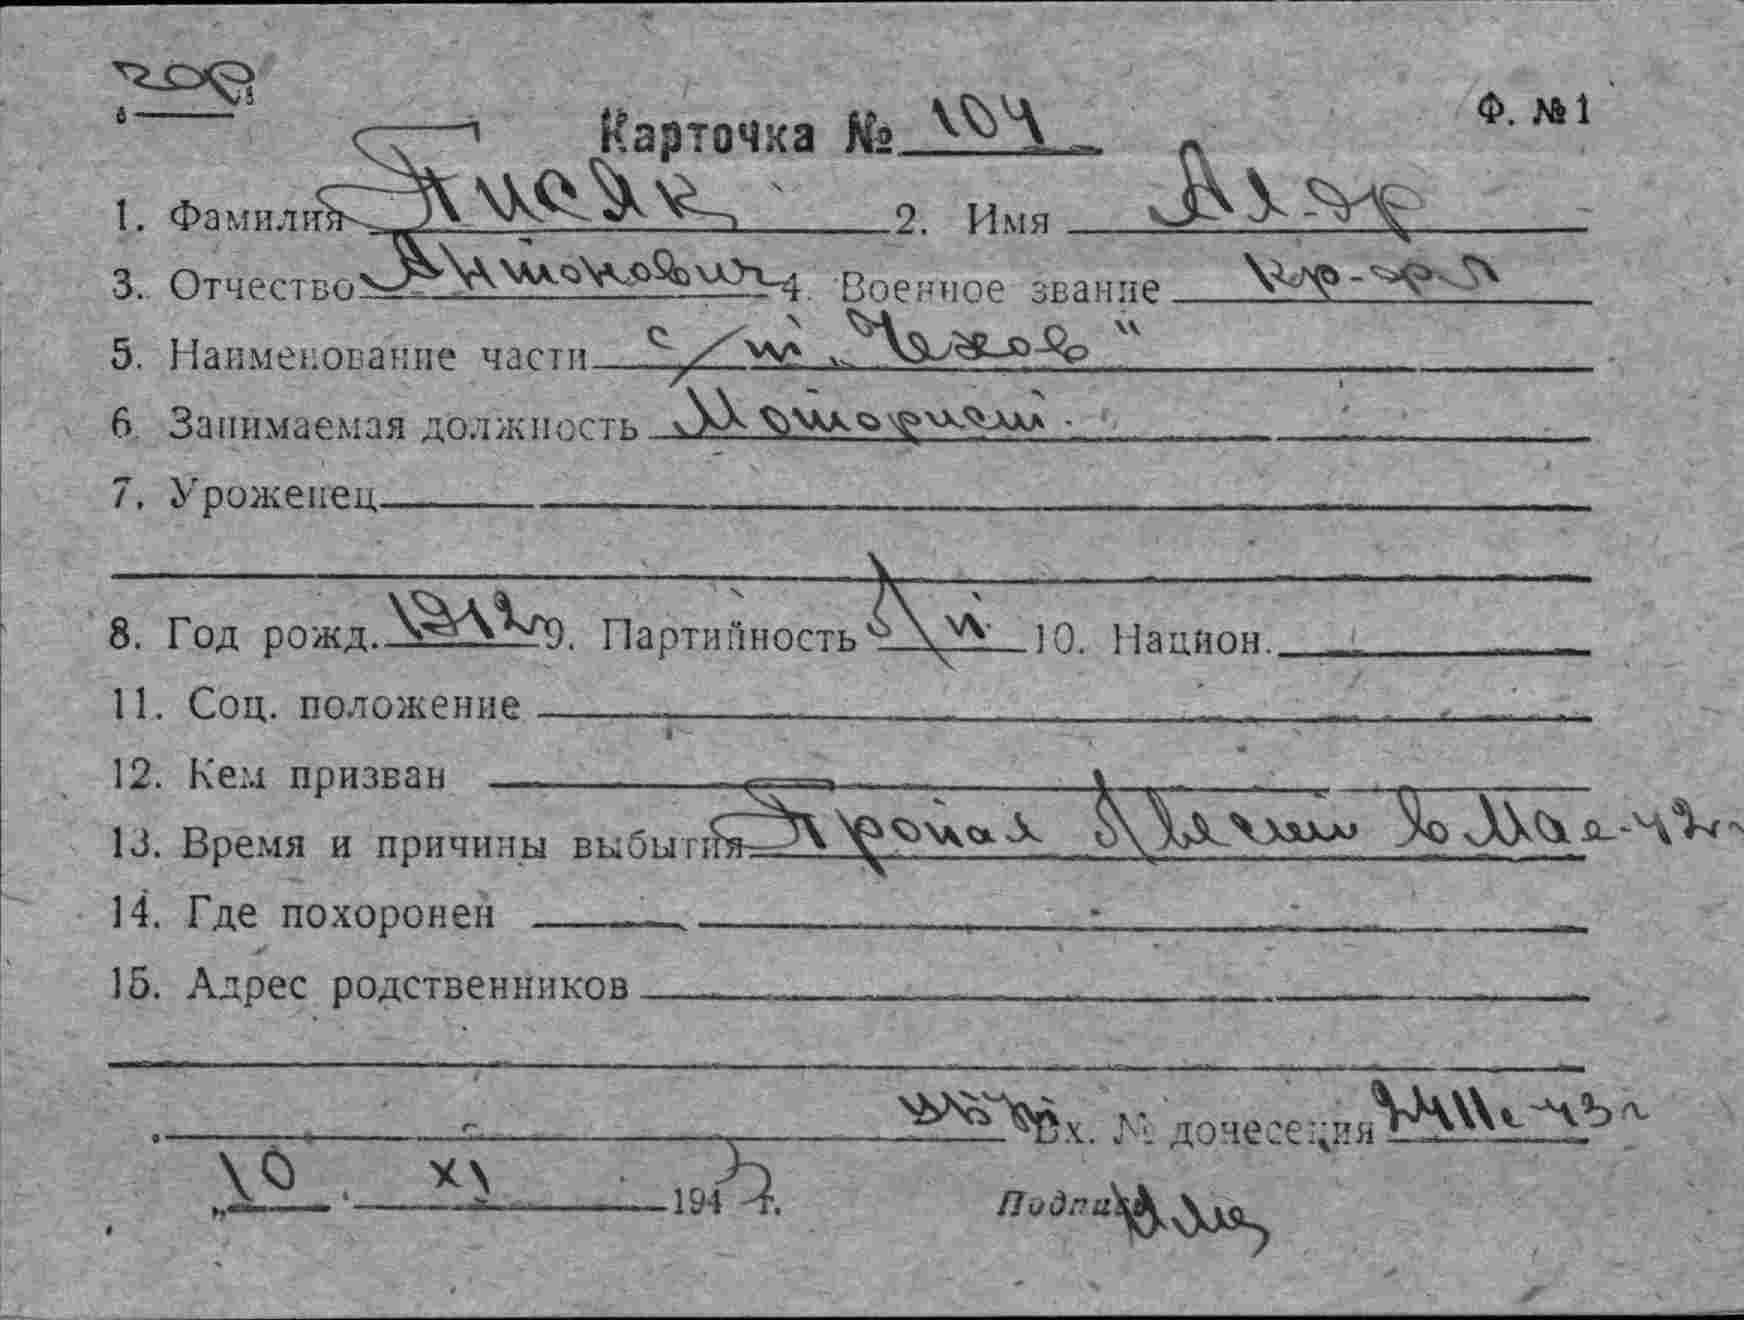 Ф. №1
Карточка № 104
1. Фамилия Писяк 2. Имя Ал-др
3. Отчество Антонович 4. Военное звание кр-фл
5. Наименование части с/т „Чехов"
6. Занимаемая должность Моторист.
7. Уроженец
8. Год рожд. 1912 г 9. Партийность б/п 10. Национ.
11. Соц. положение
12. Кем призван
13. Время и причины выбытия Пропал б/вести в Мае-42г
14. Где похоронен
15. Адрес родственников
Вх. № донесения 43г
„10 XI 1943 г. Подпись